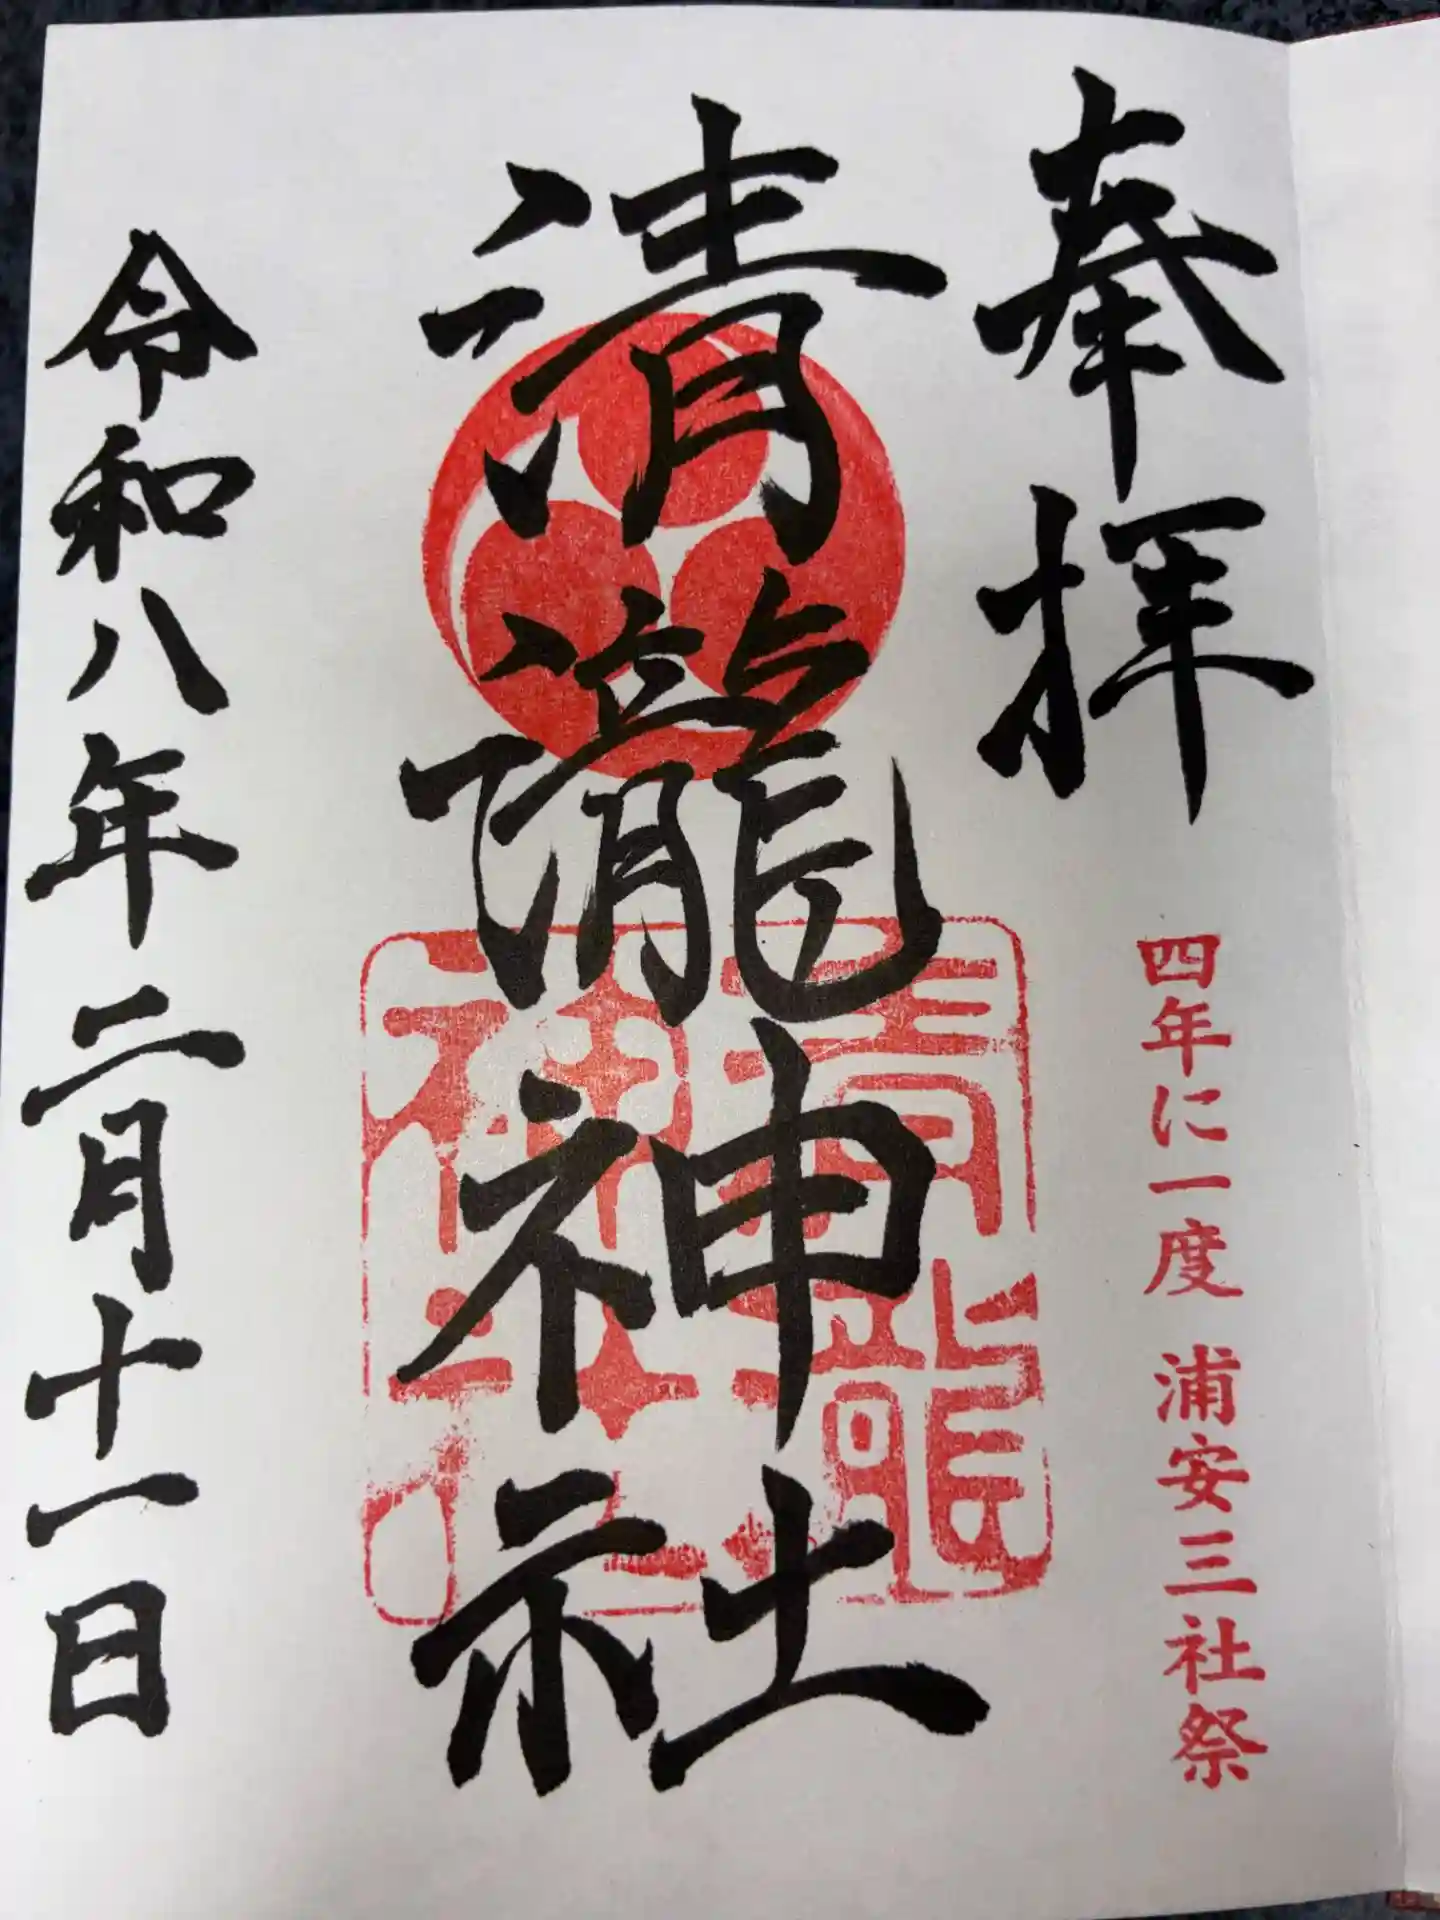 奉拝
四年に一度 浦安三社祭
清瀧神社
令和八年二月十一日